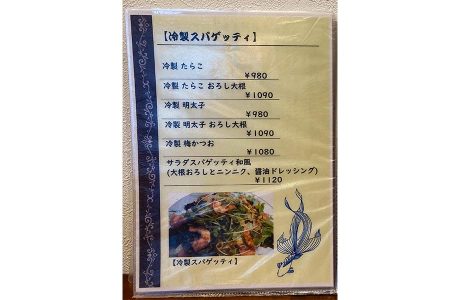 【冷製スパゲッティ】
冷製 たらこ
￥980
冷製 たらこ おろし大根
￥1090
冷製 明太子
￥980
冷製 明太子 おろし大根
￥1090
冷製 梅かつお
￥1080
サラダスパゲッティ和風
(大根おろしとニンニク、醤油ドレッシング)
￥1120
【冷製スパゲティ】